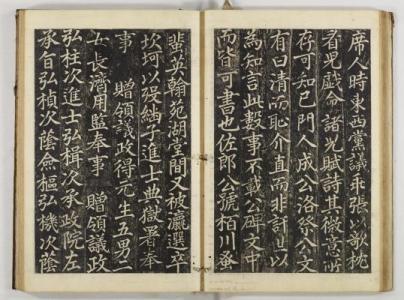 席人時東西黨議乖張以歌桃
者児戱命諸児賦詩其微意所
存可知已門人成公洛祭公文
有曰清而恥介直而非訐世以
為知言此數事不載公碑文中
而皆可書也佐郎公號栢川登
蜚英翰苑湖堂間又被瀛選卒
坎坷以殁紬子進士典獄署奉
事 贈領議政得元生五男二
士長濟用監奉事 贈領議政
弘柱次進士弘楫次承政院左
承旨弘楨次蔭僉樞弘機次蔭